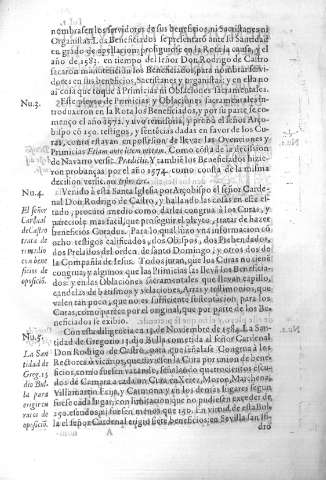 nombrassen los servidores de sus beneficios, ni Sacristanes ni
Organistas. Los Beneficiados se presentaron ante su Santidad
en grado de apelacion: prosiguiose en la Rota la causa, y el
año de 1583. en tiempo del señor Don Rodrigo de Castro
sacaron manutencion los Beneficiados, para nombrar servi-
dores en sus beneficios, Sacristanes y organistas: y en ella no
ai cosa que toque a Primicias ni Oblaciones sacramentales.
Nu.3.
Este pleyto de Primicias y Oblaciones sacramentales in-
troduxeron en la Rota los Beneficiados, y por su parte se co-
mençò el año de 1572.
bispo con 150. testigos, y sentēcias dadas en favor de los Cu-
ras, como estavan en possession de llevar las Ovenciones y
Primicias
Como consta de la decision
de Navarro versic. Y tambiē los Beneficiados hizie-
ron probanças por el año 1574. como consta de la misma
decision versic.
Nu.4.
Venido a esta Santa Iglesia por Arçobispo el señor Carde-
nal Don Rodrigo de Castro, y hallando las cosas en este es-
tado, procurò medio como darles congrua à los Curas, y
pareciole que el mejor era, proseguir el pleyto, tratar de hazer
beneficios Curados. Para lo qual hizo vna informacion cō
ocho testigos calificados, dos Obispos, dos Prebendados,
dos Prelados del orden de santo Domingo, y otros dos de
la Compañia de Iesus. Todos juran, que los Curas no tienē
congrua, y algunos que las Primicias las llevā los Beneficia-
dos: y en las Oblaciones sacramentales que llevan capillo,
candelas de batismos y velaciones, Arras y testimonios, que
valen tan poco, que no es suficiente sustentacion para los
Curas, como parece por el original, que por parte de los Be-
neficiados se exibio.
El señor
Cardenal
de Castro
trata de
remedio
con bene-
ficios de
oposiciō.
Nu.5.
Con esta diligencia en 13. de Noviembre de 1584. La San-
tidad de Gregorio 13. dio Bulla sometida al señor Cardenal
Don Rodrigo de Castro, para que señalasse Congrua a los
Rectores ò vicarios, que sirviessen la Cura por via de bene-
ficios, como fuessen vacando, señalando quatrocientos escu-
dos de Camara a cada un Cura en Xerez, Moron, Marchena,
Villamartin Ecija, y Carmona y en los demas lugares segun
fuesse cada lugar, con limitacion, que no pudiessen exceder de
250. escudos, ni fuessen menos que 150. En virtud de esta Bul-
la el señor Cardenal erigio siete beneficios, en Sevilla san Isi-
La San
tidad de
Greg. 13
dio Bul
la para
erigir en
de
oposiciō.
A
dro